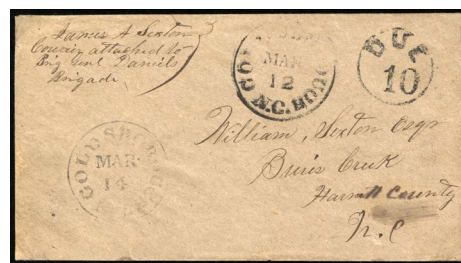 James A Sexton
Courier attached to
Brig Genl Daniels
Brigade
MAR
12
N.C.
DUE
10
GOLDSBORO
MAR
14
William, Sexton Esqr
Buies Creek
Harnett County
N. C